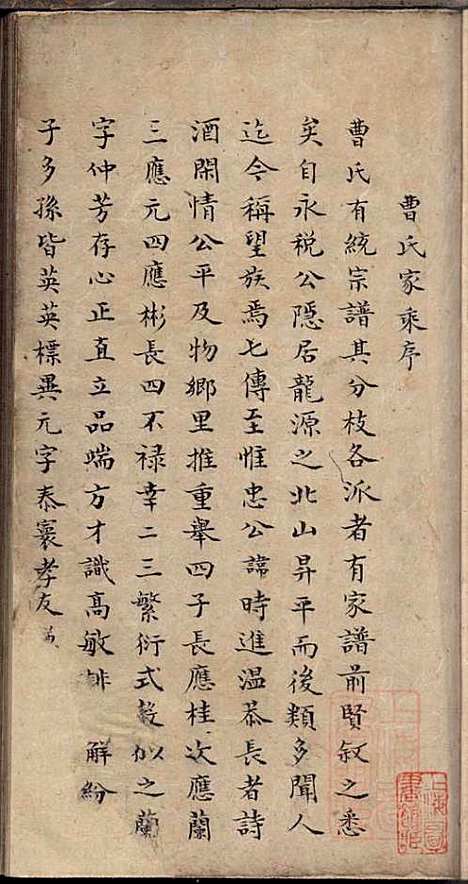 曹氏家乘序
曹氏有統宗譜其分枝各派者有家譜前賢叙之悉
矣自永税公隱居龍源之北山昇平而後類多聞人
迄今稱望族焉七傳至惟忠公諱時進温恭長者詩
酒閑情公平及物鄉里推重舉四子長應桂次應蘭
三應元四應彬長四不禄幸二三繁衍式穀似之蘭
字仲芳存心正直立品端方才識高敏排解紛
子多孫皆英英標異元字泰寰孝友